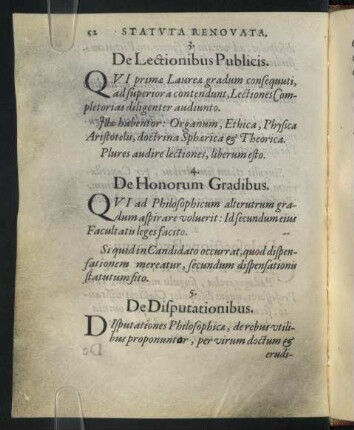 52 STATVTA RENOVATA.
3.
De Lectionibus Publicis.
QVI primæ Laureæ gradum consequuti,
ad superiora contendunt, Lectiones Com-
pletorias diligenter audiunto.
Istæ habentor: Organum, Ethica, Physica
Aristotelis, doctrina Sphærica & Theorica.
Plures audire lectiones, liberum esto.
4.
De Honorum Gradibus.
QVI ad Philosophicum alterutrum gra-
dum aspirare voluerit: Id secundum eius
Facultatis leges facito.
Si quid in Candidato occurrat, quod dispen-
sationem mereatur, secundum dispensationis
statutum fito.
5.
De Disputationibus.
DIsputationes Philosophicæ, de rebus utili-
bus proponuntor, per virum doctum &
erudi-